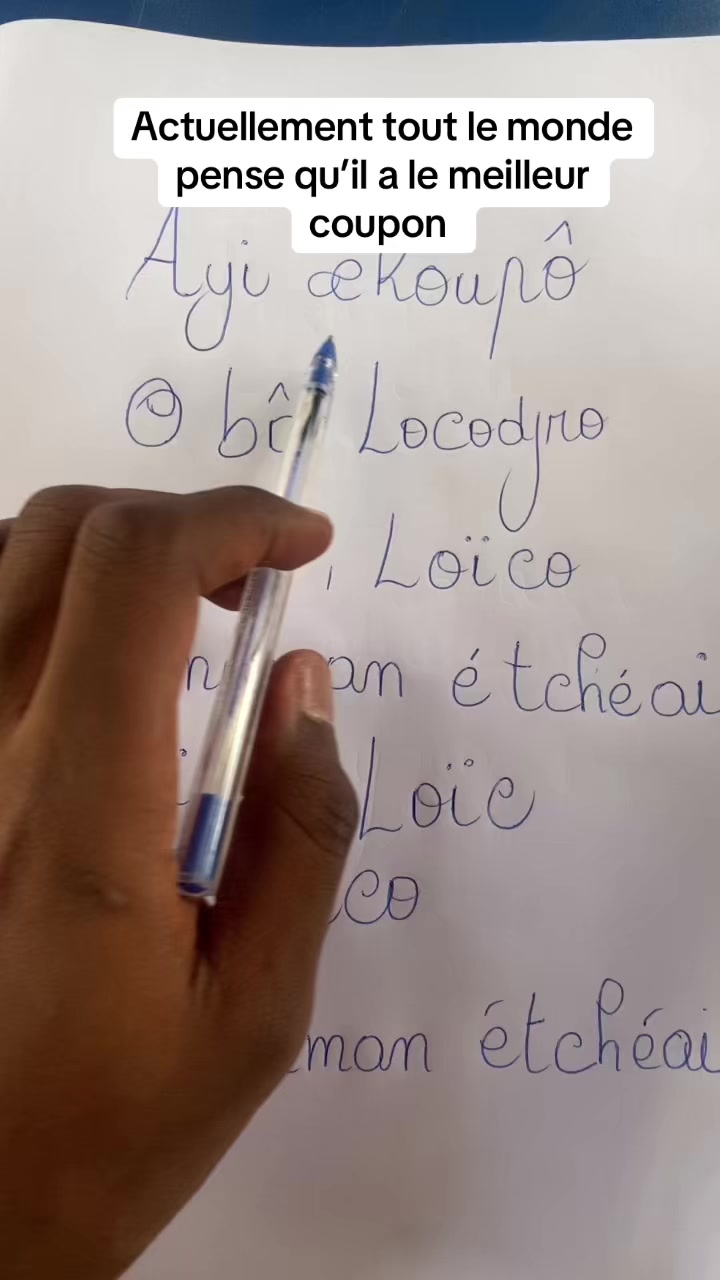 Actuellement tout le monde
pense qu'il a le meilleur
coupon
Ayi œkoupô
O Locodjro
Loïco
étchéai
Loïc
co
man étchéai